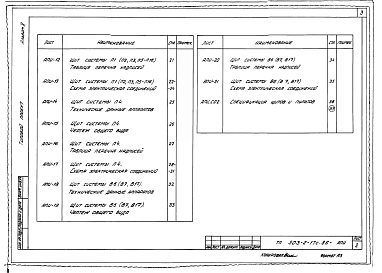 3
Альбом
Типовой проект
Лист Наименование Стр Примеч.
АПИ-12 Щит системы П1 (П2, П3, П5-П18)
Таблица перечня надписей 21
АПИ-13 Щит системы П1 (П2, П3, П5-П18)
Схема электрическая соединений 22-24
АПИ-14 Щит системы П4.
Технические данные аппаратов 25
АПИ-15 Щит системы П4
Чертеж общего вида 26
АПИ-16 Щит системы П4.
Таблица перечня надписей 27
АПИ-17 Щит системы П4.
Схема электрическая соединений 28-31
АПИ-18 Щит системы В6 (В7, В17).
Технические данные аппаратов 32
АПИ-19 Щит системы В6 (В7, В17).
Чертеж общего вида 33
Лист Наименование Стр Примеч
АПИ-20 Щит системы В6 (В7, В17)
Таблица перечня надписей 34
АПИ-21 Щит системы В6 (В7, В17).
Схема электрическая соединений 35
Спецификация щитов и пультов 36
ТП 503-2-17с.86- АПИ
Лист
2
Копировал
Формат А3